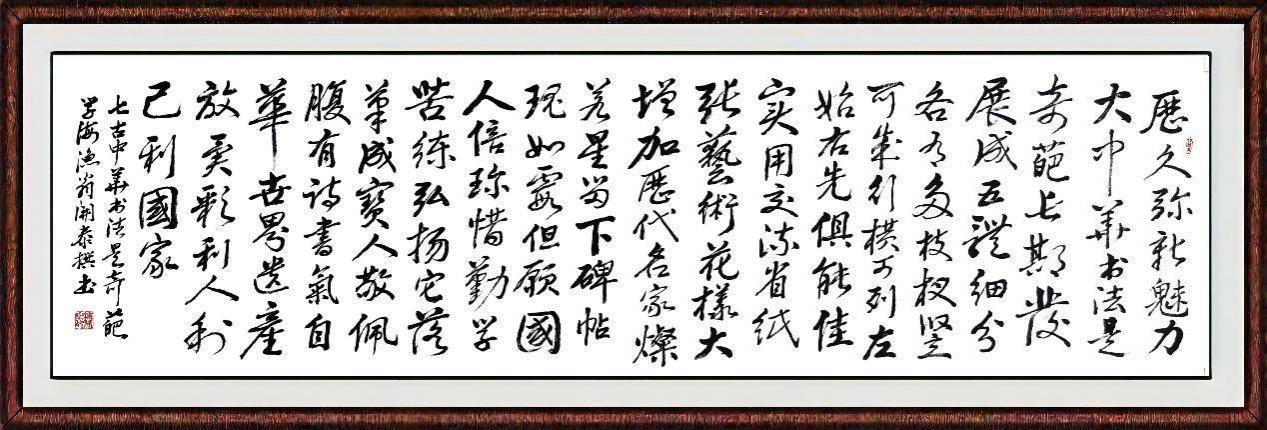 歷久弥新魅力
大中華书法是
奇葩长期發
展成五體细分
各有多枝杈竖
可成行横可列左
始右先俱能佳
实用交流省纸
张藝術花樣大
增加歷代名家燦
若星留下碑帖
瑰如霞但願國
人倍珎惜勤学
苦练弘扬它落
筆成寶人敬佩
腹有詩書氣自
華世界遗産
放異彩利人利
己利國家
七古中華书法是奇葩
学海漁翁開泰撰书